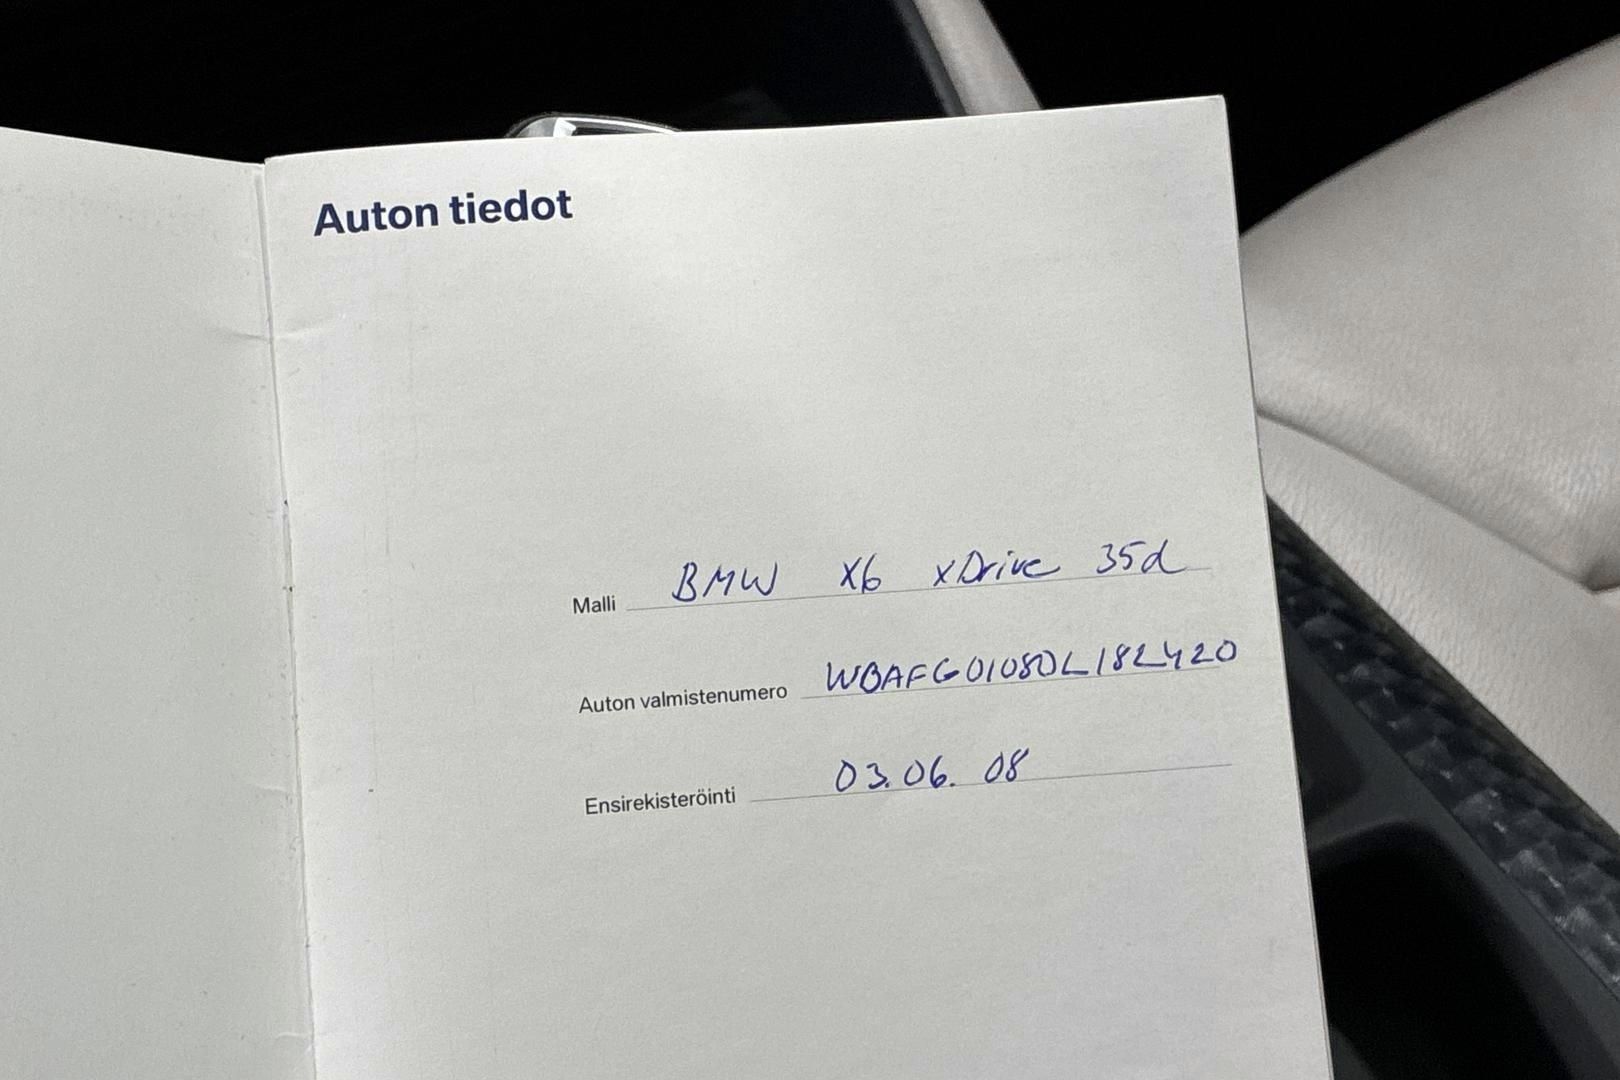 Auton tiedot
Malli BMW X6 xDrive 35d
Auton valmistenumero WBAFG01080L182420
Ensirekisteröinti 03.06.08